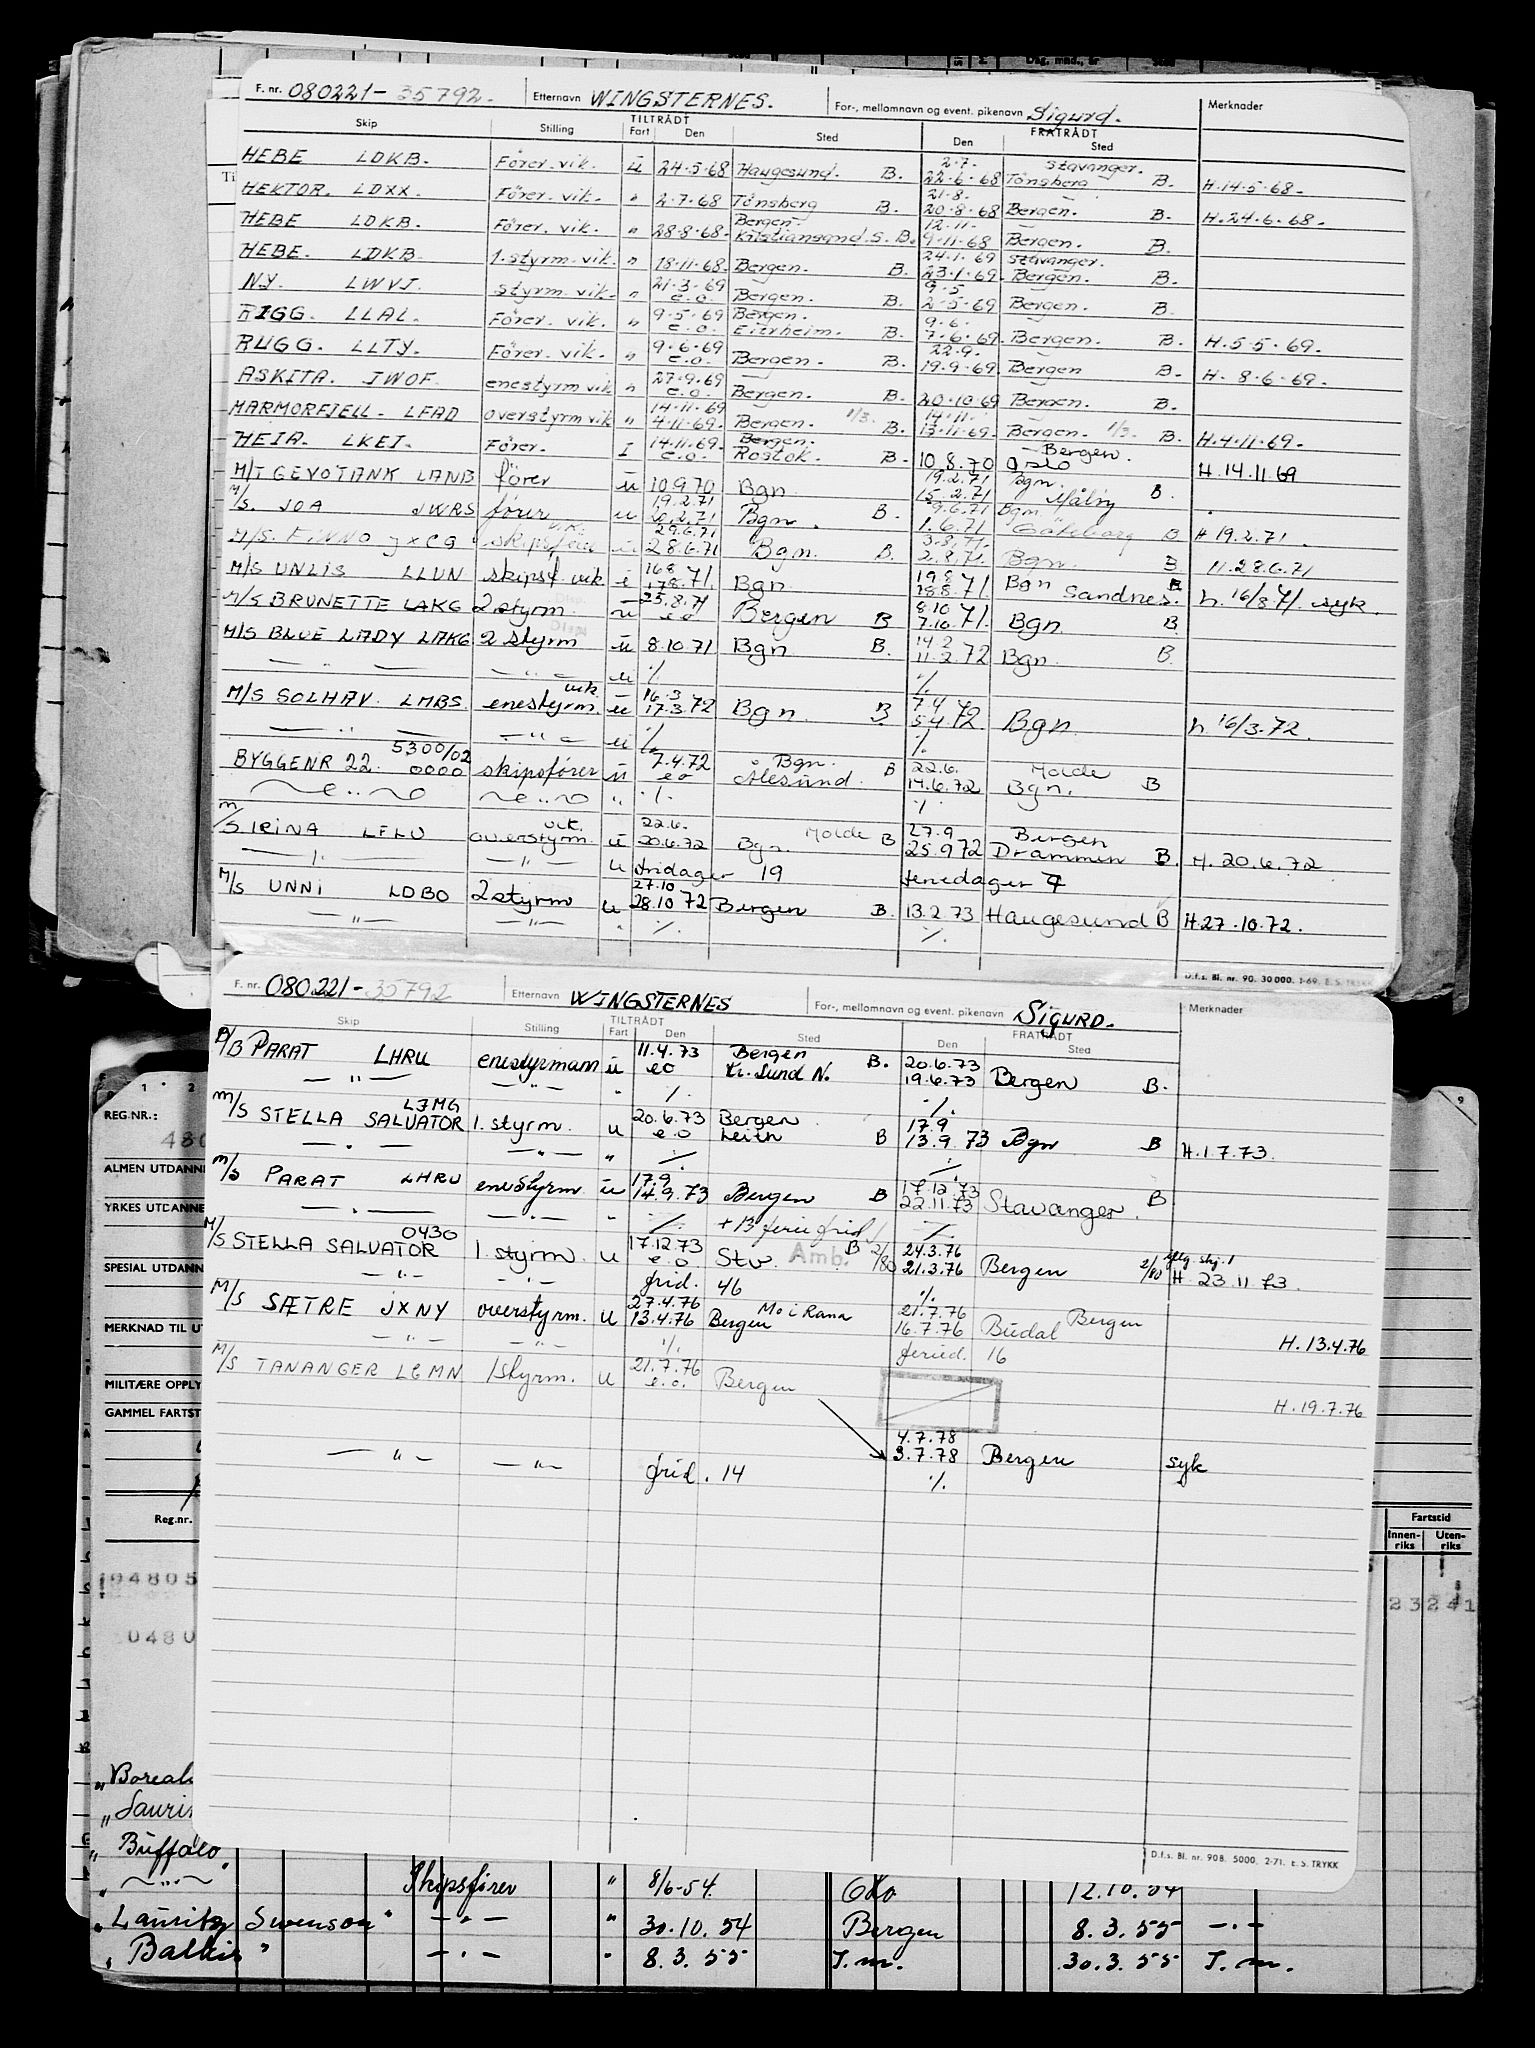 F. nr. 080221-35792. Etternavn WINGSTERNES. For-, mellomnavn og event. pikenavn Sigurd. Merknader
Skip Stilling TILTRÅDT Fart Den Sted FRATRÅDT Den Sted
HEBE LDKB. Förer. vik. ü 24.5.68 Haugesund. B. 2.7. 22.6.68 Stavanger. Tönsberg B. H.14.5.68.
HEKTOR. LDXX. Förer. vik. " 2.7.68 Tönsberg B. 21.8. 20.8.68 Bergen. B. H.24.6.68.
HEBE LDKB. Förer. vik. " 28.8.68. Bergen. Kristiansand.S. B. 12.11. 9.11.68 Bergen. B.
HEBE. LDKB. 1.styrm.vik. " 18.11.68. Bergen. B. 24.1.69 23.1.69. Stavanger. Bergen. B.
NY. LWVJ. styrm.vik. " 21.3.69 e.o. Bergen. B. 9.5 2.5.69 Bergen. B.
RIGG. LLAL. Förer. vik. " 9.5.69 e.o. Bergen. Eitrheim. B. 9.6. 7.6.69. Bergen. B. H.5.5.69.
RUGG. LLTY. Förer. vik. " 9.6.69 e.o. Bergen. B. 22.9. 19.9.69. Bergen B. H. 8.6.69.
ASKITA. JWOF. enestyrm vik " 27.9.69 e.o. Bergen. B. 20.10.69 Bergen. B.
MARMORFJELL. LFAD overstyrm vik " 14.11.69 4.11.69. Bergen. 1/3. B. 14.11. 13.11.69. Bergen. 1/3. B. H.4.11.69.
HEIA. LKEI. Förer. I 14.11.69. e.o. Bergen. Rostok. B. 10.8.70 Bergen. Oslo H.14.11.69
M/T GEVOTANK LANB fører ü 10.9.70 Bgn 19.2.71 15.2.71 Bgn. Måløy B.
M/S. JOA JWRS fører u 19.2.71 20.2.71 Bgn. B. 29.6.71 1.6.71 Bgn. Göteborg B H 19.2.71.
M/S. FINNO JXCQ skipsfører vik. ü 29.6.71 28.6.71 Bgn. B. 3.8.71. 2.8.71. Bgn. B H.28.6.71
M/S UNLIS LLUN skipsf. vik i 16.8 17.8.71. Bgn 19.8 18.8.71 Bgn Sandnes. B h. 16/8.71. syk.
M/S BRUNETTE LAKG 2 styrm. ü 25.8.71 eo Bergen B 8.10 7.10.71. Bgn B
M/S BLUE LADY LAKG 2 styrm ü 8.10.71 Bgn B. 14.2 11.2.72 Bgn B.
— " — — " — u ./. ./.
M/S SOLHAV. LMBS. enestyrm. vik. ü 16.3 17.3.72 Bgn B 7.4 5.4.72 Bgn h. 16/3.72.
— " — — " — u ./. ./.
BYGGENR 22. 5300/02 0000 skipsfører ü 7.4.72 eo Bgn. Ålesund. B 22.6. 14.6.72 Molde Bgn. B
— " — — " — " ./. ./.
M/S IRINA LFLU overstyrm. vik. ü 22.6. 20.6.72 Bgn. Molde B 27.9 25.9.72 Bergen Drammen B. H. 20.6.72
— " — — " — u fridager 19 feriedager 7
M/S UNNI LDBO 2 styrm u 27.10 28.10.72 Bergen B. 13.2.73 Haugesund B H.27.10.72.
— " — — " — " ./. ./.
D.f.s. Bl. nr. 90. 30 000. 1-69. E. S. TRYKK
F. nr. 080221-35792 Etternavn WINGSTERNES For-, mellomnavn og event. pikenavn SIGURD. Merknader
Skip Stilling TILTRÅDT Fart Den Sted FRATRÅDT Den Sted
B/B PARAT LHRU enestyrmann ü 11.4.73 eo Bergen Kr. Sund N. B. 20.6.73 19.6.73 Bergen B.
— " — — " — " ./. ./.
M/S STELLA SALVATOR LJMG 1. styrm. u 20.6.73 e.o Bergen Leith B 17.9 13.9.73 Bgn B H.1.7.73.
— " — — " — " ./. ./.
M/S PARAT LHRU enestyrm ü 17.9. 14.9.73 Bergen B 17.12.73 22.11.73 Stavanger. B
— " — — " — " ./. + 13 ferie frid ./.
M/S STELLA SALVATOR 0430 1. styrm. u 17.12.73 e.o Stv. Amb. B 2/80 24.3.76 21.3.76 Bergen 2/80 iflg. skj. 1 H. 23.11.73.
— " — — " — frid. 46 ./.
M/S SÆTRE JXNY overstyrm. u 27.4.76 13.4.76 Bergen Mo i Rana 21.7.76 16.7.76 Budal Bergen H.13.4.76
— " — — " — ./. feried. 16
M/S TANANGER LGMN 1styrm. u 21.7.76 e.o. Bergen H.19.7.76
4.7.78
— " — — " — 3.7.78 Bergen syk
frid. 14 ./.
D.f.s. Bl. nr. 90B. 5000. 2-71. E. S. TRYKK
REG.NR.:
480
ALMEN UTDANNE
YRKES UTDANNE
SPESIAL UTDANN
MERKNAD TIL UT
MILITÆRE OPPLY
GAMMEL FARTST
Reg.nr. Fartstid
Innen-riks Uten-riks
04805
23241
0480
" Boreal
" Lauri
" Buffalo
" — " — Skipsfører " 8/6-54. Oslo 12.10.54
" Lauritz Swenson " — " — " 30.10.54 Bergen 8.3.55 — " —
" Balkis " — " — " 8.3.55 T.m. 30.3.55 T.m.